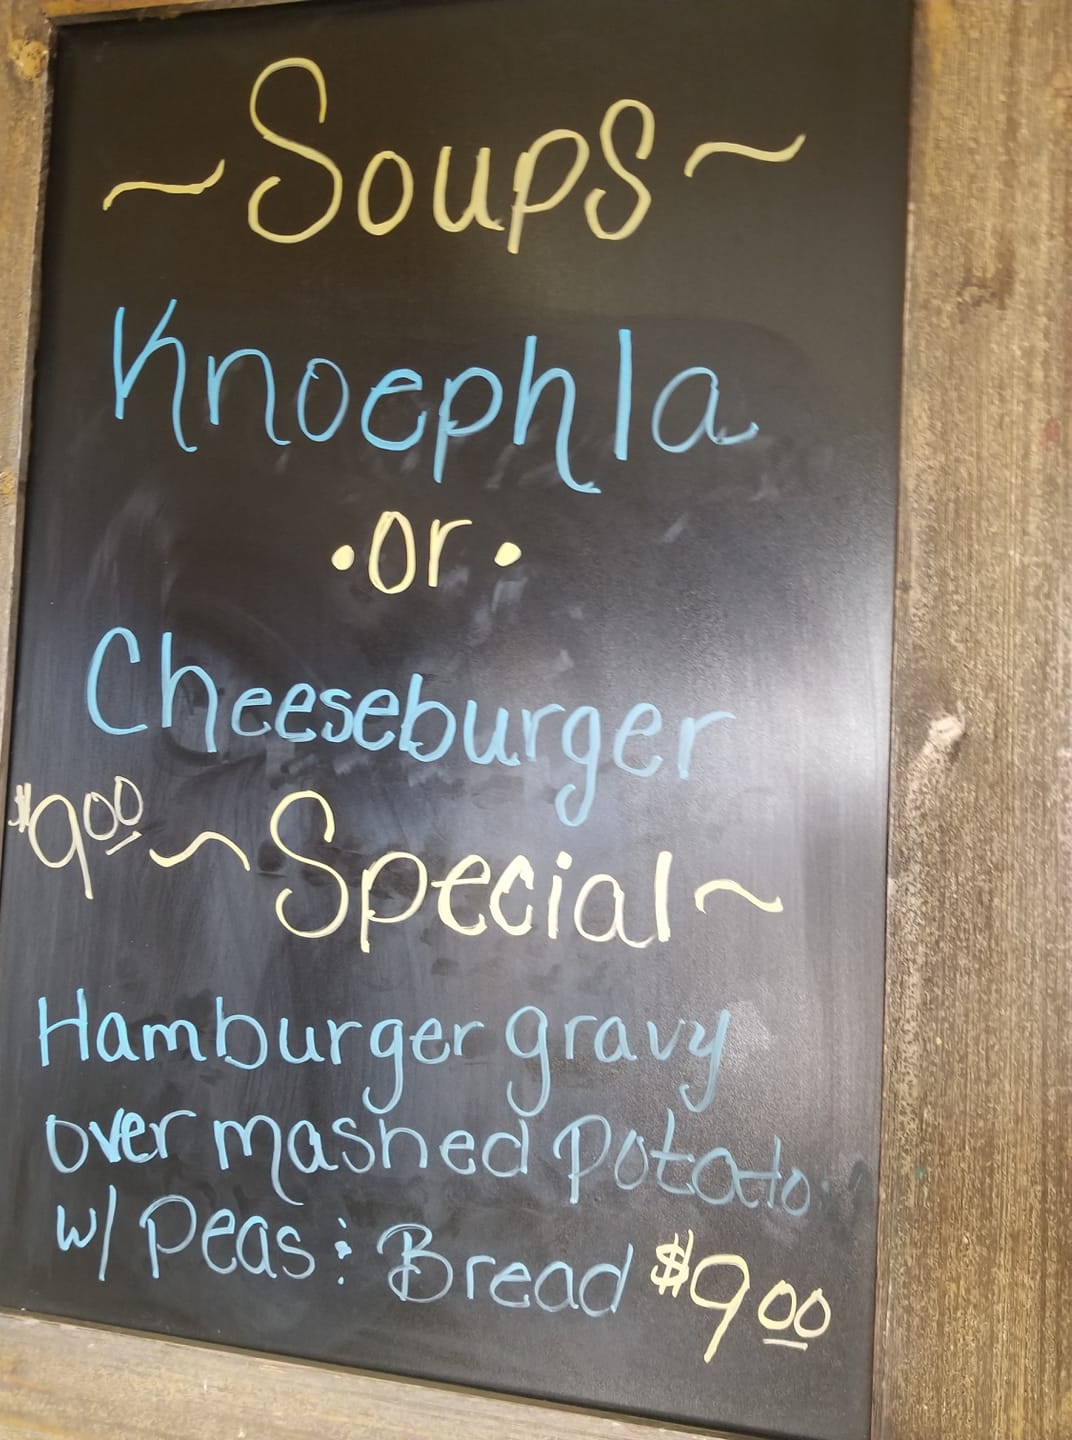 ~Soups~
Knoephla
·or·
Cheeseburger
$9.00 ~Special~
Hamburger gravy
over mashed potato
w/ Peas : Bread $9.00